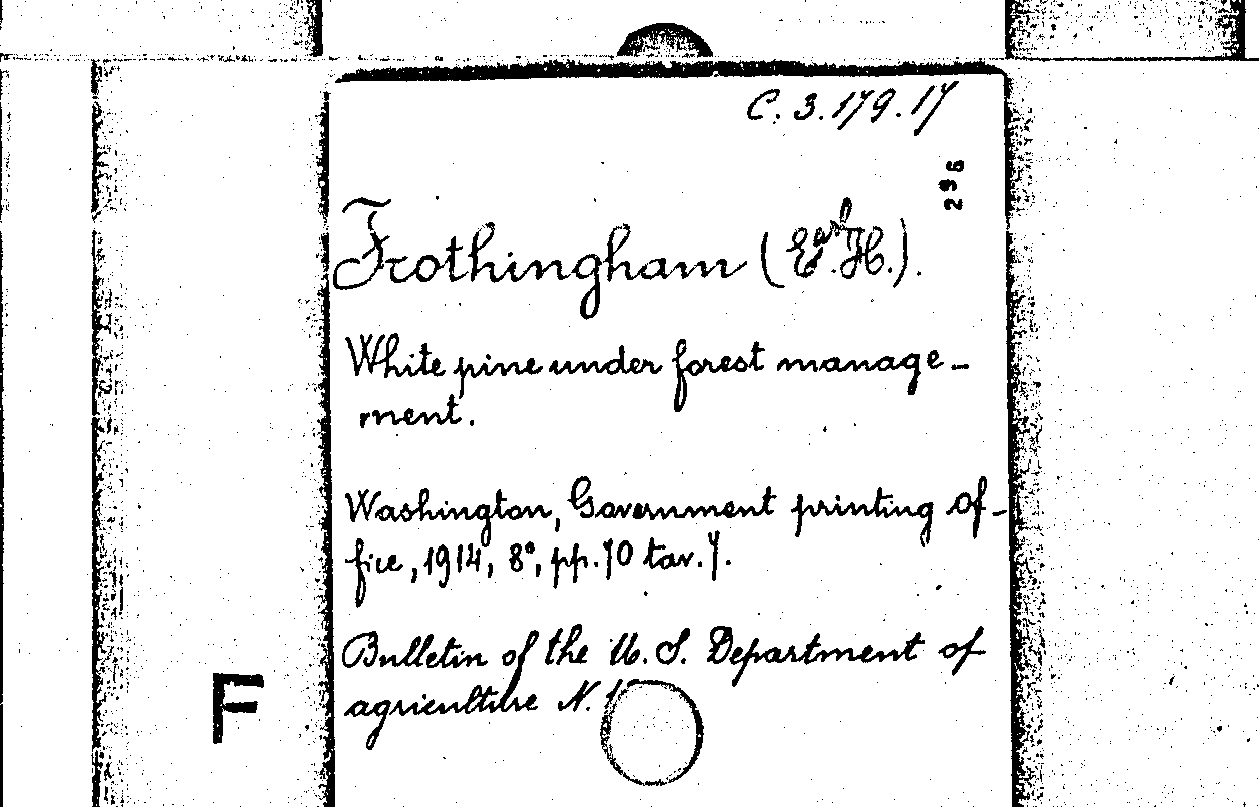 C. 3.179.17
296
Frothingham (Earl H.).
White pine under forest manage-
ment.
Washington, Government printing Of-
fice, 1914, 8°, pp. 70 tav. 7.
Bulletin of the U. S. Department of
agriculture N. 1
F